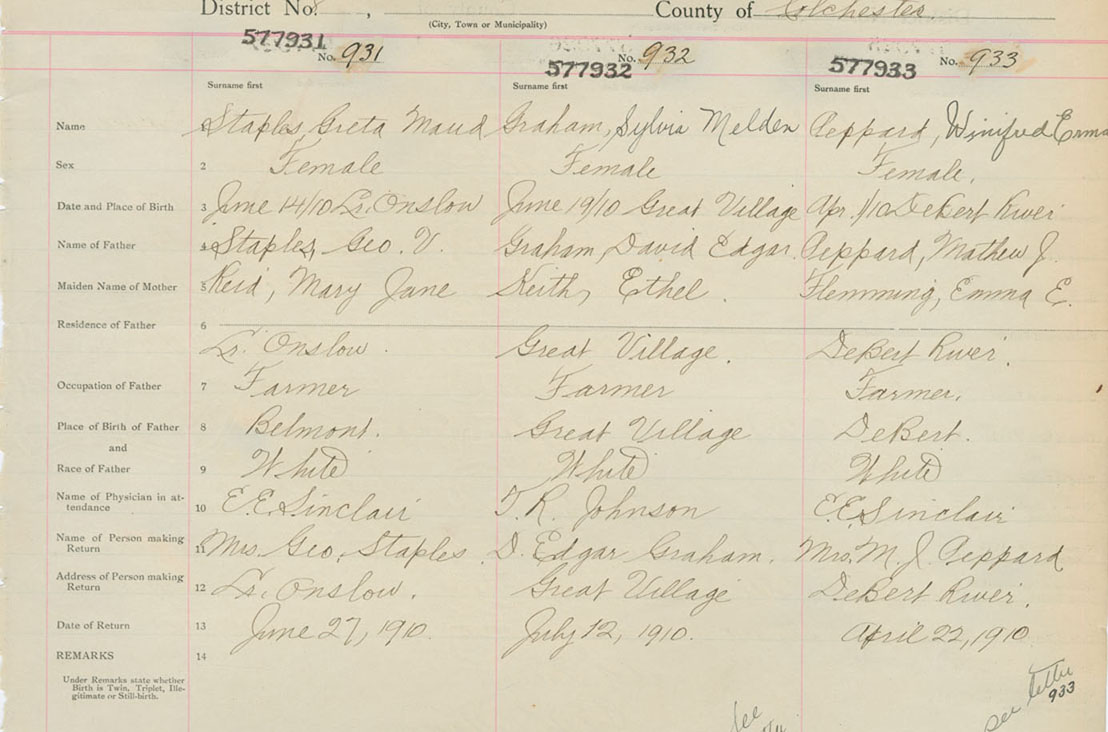 District No. 8 , County of Colchester.
(City, Town or Municipality)
577931 No. 931 577932 No. 932 577933 No. 933
Surname first Surname first Surname first
Name 1 Staples, Greta Maud Graham, Sylvia Melden Peppard, Winifred Erma
Sex 2 Female Female Female.
Date and Place of Birth 3 June 14/10 Lr. Onslow June 19/10 Great Village Apr. 1/10 DeBert River
Name of Father 4 Staples, Geo. V. Graham, David Edgar. Peppard, Mathew J.
Maiden Name of Mother 5 Reid, Mary Jane Keith, Ethel. Flemming, Emma E.
Residence of Father 6
Lr. Onslow. Great Village. DeBert River.
Occupation of Father 7 Farmer Farmer Farmer.
Place of Birth of Father 8 Belmont. Great Village DeBert.
and
Race of Father 9 White White White
Name of Physician in at-
tendance 10 E.E. Sinclair T. R. Johnson E.E. Sinclair
Name of Person making
Return 11 Mrs. Geo. Staples. D. Edgar Graham. Mrs. M. J. Peppard
Address of Person making
Return 12 Lr. Onslow. Great Village DeBert River.
Date of Return 13 June 27, 1910. July 12, 1910. April 22, 1910
REMARKS 14
Under Remarks state whether
Birth is Twin, Triplet, Ille-
gitimate or Still-birth.
see letter
933
See